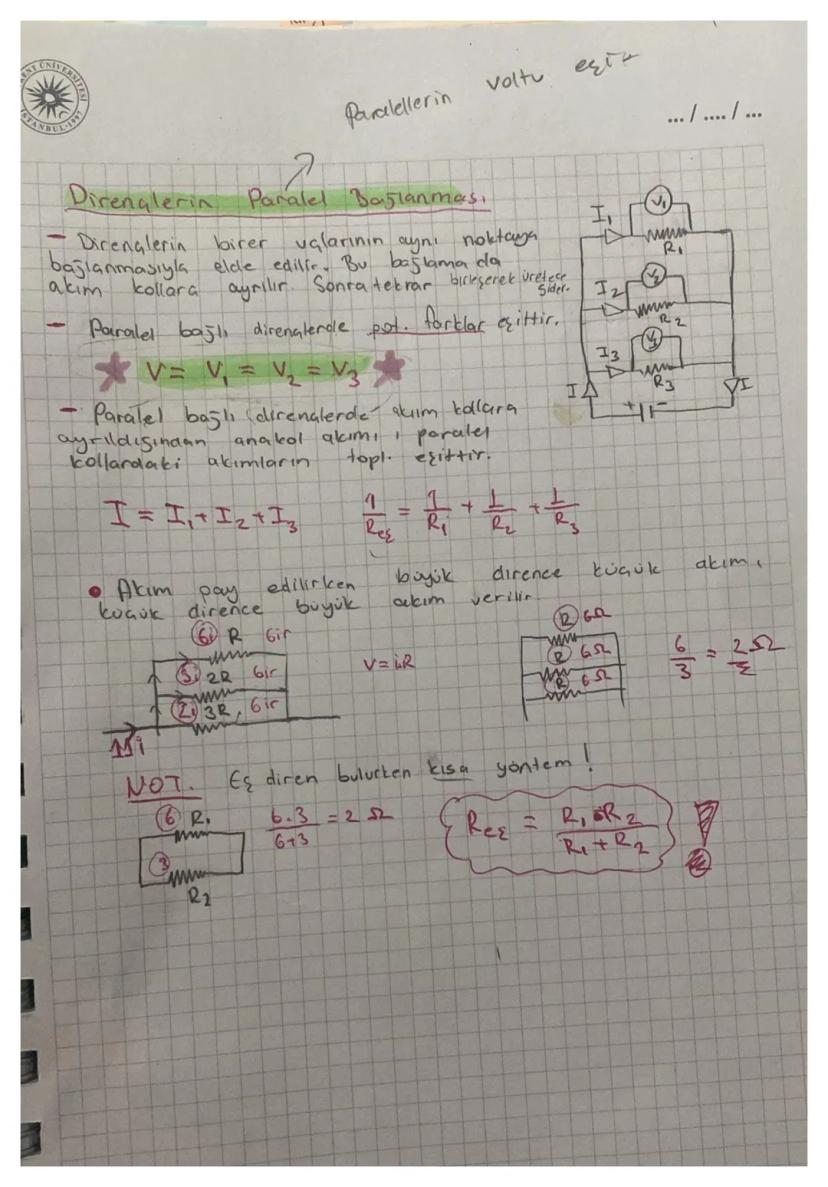 Paralellerin voltu eşit
... / .... / ...
KENT ÜNİVERSİTESİ
İSTANBUL-1997
Dirençlerin Paralel Bağlanması
- Dirençlerin birer uçlarının aynı noktaya
bağlanmasıyla elde edilir. Bu bağlama da
akım kollara ayrılır. Sonra tekrar birleşerek üretece
gider.
- Paralel bağlı dirençlerde pot. farklar eşittir.
V = V₁ = V₂ = V₃
- Paralel bağlı dirençlerde akım kollara
ayrıldığından anakol akımı, paralel
kollardaki akımların topl. eşittir.
I₁ V₁ R₁
I₂ V₂ R₂
I₃ V₃ R₃
I + - I
I = I₁ + I₂ + I₃
1/Reş = 1/R₁ + 1/R₂ + 1/R₃
• Akım pay edilirken büyük dirence küçük akım,
küçük dirence büyük akım verilir.
6i R 6ir
3i 2R 6ir
2i 3R, 6ir
11i
V = iR
R 6Ω
R 6Ω
R 6Ω
6/3 = 2Ω
NOT. Eş diren bulurken kısa yöntem!
6 R₁
3
R₂
6.3/6+3 = 2 Ω
Reş = R₁ . R₂/R₁ + R₂ !